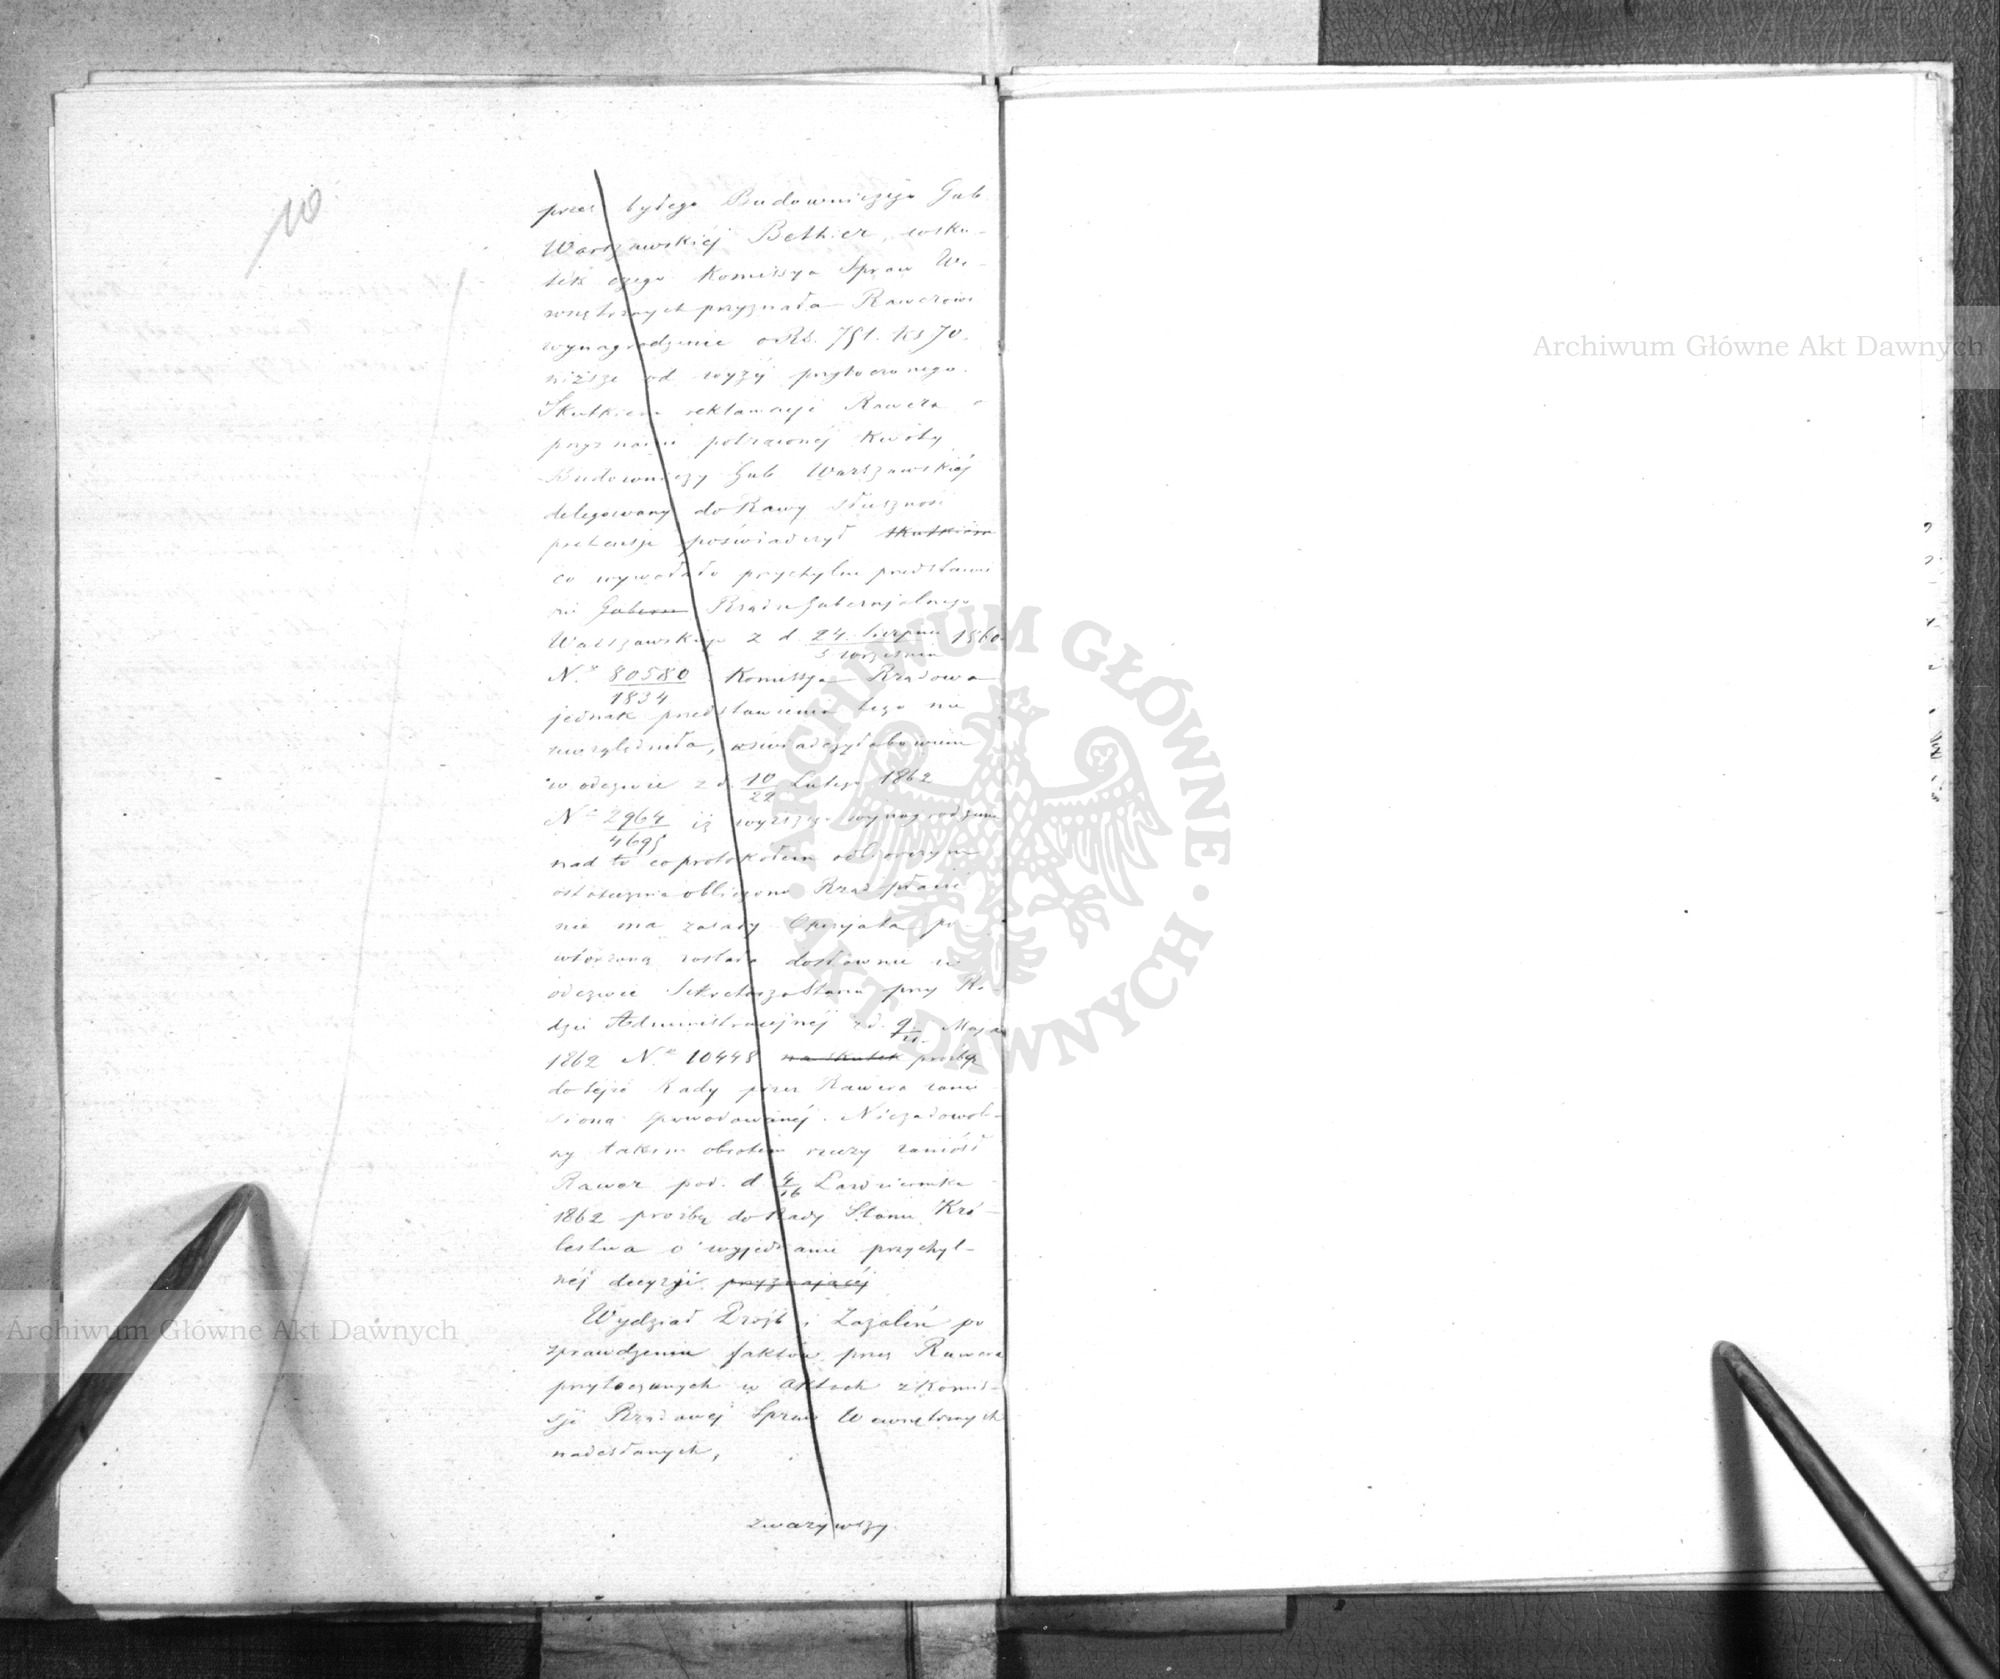 10
przez byłego Budowniczego Gub
Warszawskiéj Bethier, wsku-
tek czego Komissya Spraw We-
wnętrznych przyznała Rawerowi
wynagrodzenie o Rs. 751. Ks 70.
niższe od wyżéj przytoczonego.
Skutkiem reklamacyi Rawera o
przyznanie potrąconéj kwoty
Budowniczy Gub Warszawskiéj
delegowany do Rawy słuszność
pretensji poświadczył skutkiem
co wywołało przychylne przedstawie
nie Gubern Rządu Gubernjalnego
Warszawskiego z d. 24. Sierpnia 1860
5 Września
No 80580 Komissya Rządowa
1834
jednak przedstawienia tego nie
uwzględniła, oświadczyła bowiem
w odezwie z d. 10 Lutego 1862
22
No 2964 iż wyższego wynagrodzenia
4695
nad to co protokołem odbiorczym
ostatecznie obliczono Rząd płacić
nie ma zasady Opinja ta po-
wtórzoną została dosłownie w
odezwie Sekretarza Stanu przy Ra-
dzie Administracyjnéj z d. 9 Maja
21.
1862 No 10448 na skutek prośbą
do téjże Rady przez Rawera zanie
sioną spowodowanéj. Niezadowol-
ny takim obrotem rzeczy zaniósł
Rawer pod. d. 4 Października
16
1862 prośbę do Rady Stanu Kró-
lestwa o wyjednanie przychyl-
néj decyzji przyznającéj
Wydział Próśb i Zażaleń po
sprawdzeniu faktów przez Rawera
przytoczonych w aktach z Komis-
sji Rządowéj Spraw Wewnętrznych
nadesłanych,
zważywszy.
Archiwum Główne Akt Dawnych
Archiwum Główne Akt Dawnych
ARCHIWUM GŁÓWNE · AKT DAWNYCH ·